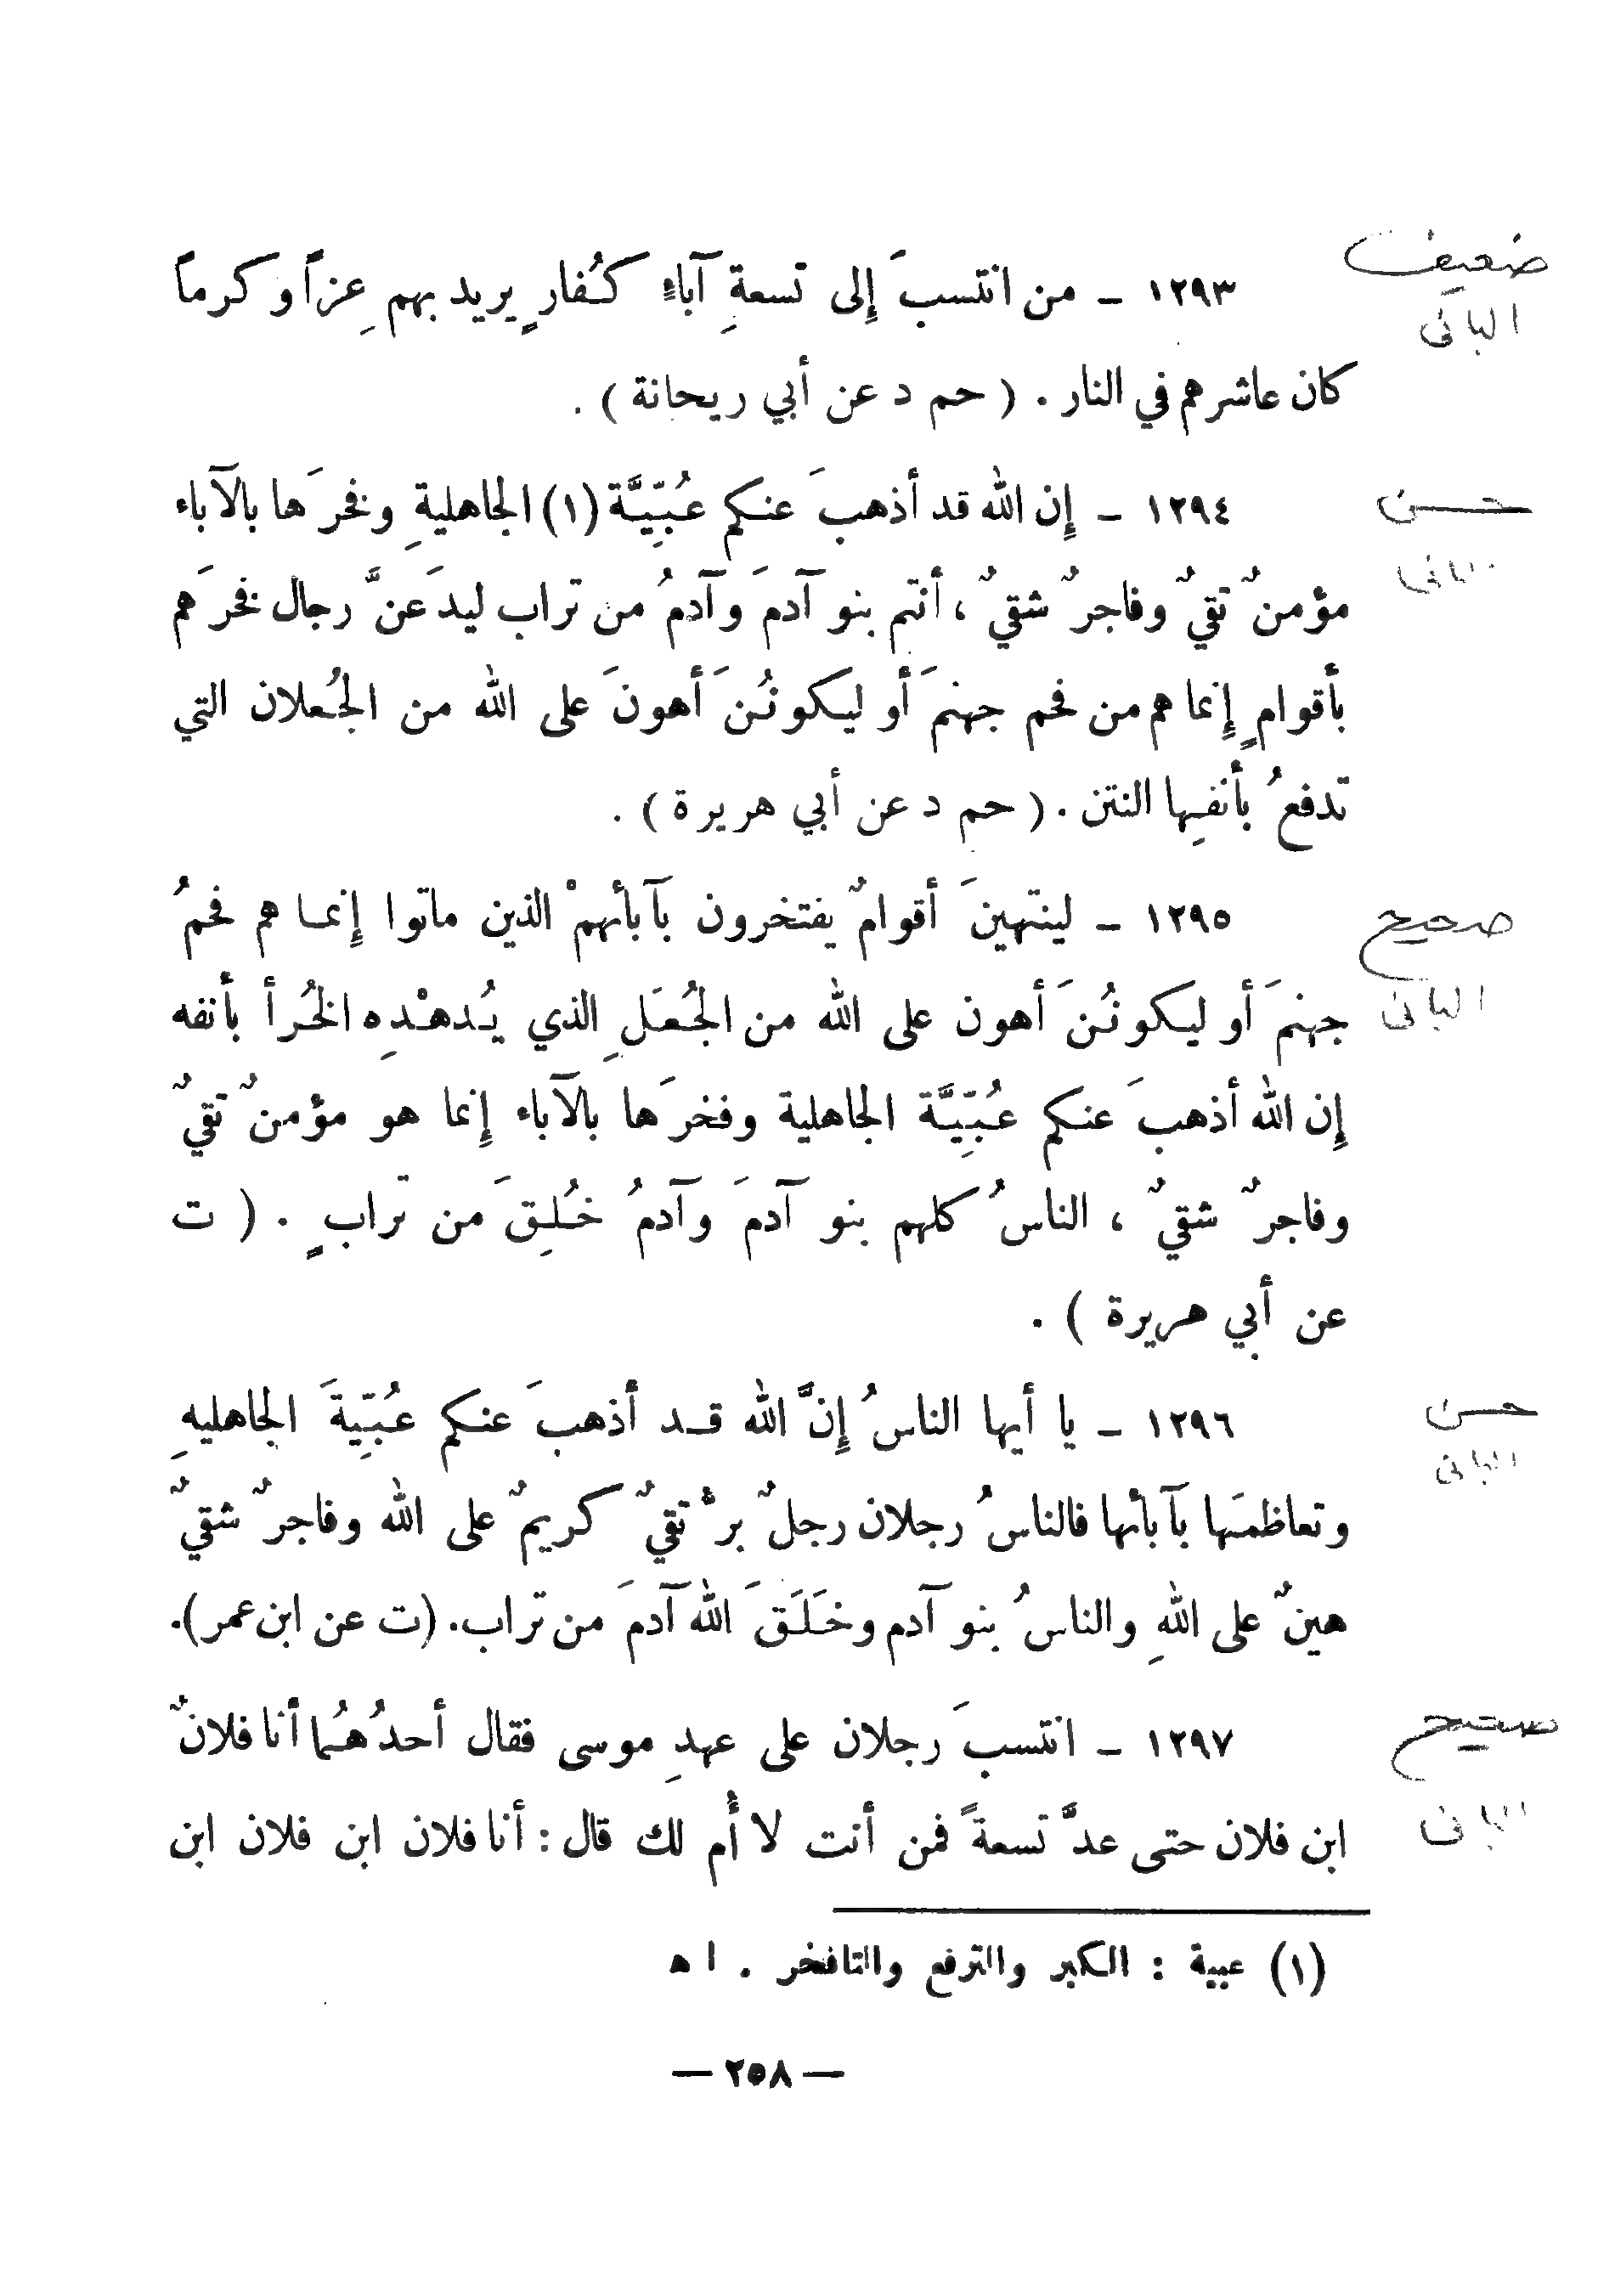 ضعيف
١٢٩٣ ـ من انتسبَ إِلى تسعةِ آباءٍ كُفارٍ يريد بهم عِزاً وكرماً
البانى
كان عاشرهم في النار . ( حم د عن أبي ريحانة ) .
حسن
١٢٩٤ ـ إِن الله قد أذهبَ عنكم عُبِّيَّة (١) الجاهليةِ وفخرَها بالآباء
البانى
مؤمنٌ تقيٌ وفاجرٌ شقيٌ ، أنتم بنو آدمَ وآدمُ من تراب ليدَعنَّ رجال فخرَهم
بأقوامٍ إِنما هم من فحم جهنمَ أو ليكونُنَ أهونَ على الله من الجُعلان التي
تدفعُ بأنفِها النتن . ( حم د عن أبي هريرة ) .
صحيح
١٢٩٥ ـ لينتهينَ أقوامٌ يفتخرون بآبأئهمْ الذين ماتوا إِنما هم فحمُ
البانى
جهنمَ أو ليكونُنَ أهون على الله من الجُعَلِ الذي يُدهْدِه الخُرأ بأنفه
إِن الله أذهبَ عنكم عُبِّيَّة الجاهلية وفخرَها بالآباء إِنما هو مؤمنٌ تقيٌ
وفاجرٌ شقيٌ ، الناسُ كلهم بنو آدمَ وآدمُ خُلِقَ من ترابٍ . ( ت
عن أبي هريرة ) .
حسن
١٢٩٦ ـ يا أيها الناسُ إِنَّ الله قد أذهبَ عنكم عُبِّيةَ الجاهليهِ
البانى
وتعاظمَها بآبأئها فالناسُ رجلان رجلٌ برٌ تقيٌ كريمٌ على الله وفاجرٌ شقيٌ
هينٌ على اللهِ والناسُ بنو آدم وخَلَقَ الله آدمَ من تراب. (ت عن ابن عمر).
صحيح
١٢٩٧ ـ انتسبَ رجلان على عهدِ موسى فقال أحدُهُما أنا فلانٌ
البانى
ابن فلان حتى عدَّ تسعةً فمن أنت لا أُم لك قال : أنا فلان ابن فلان ابن
(١) عبية : الكبر والترفع والتافخر . ا ه
— ٢٥٨ —